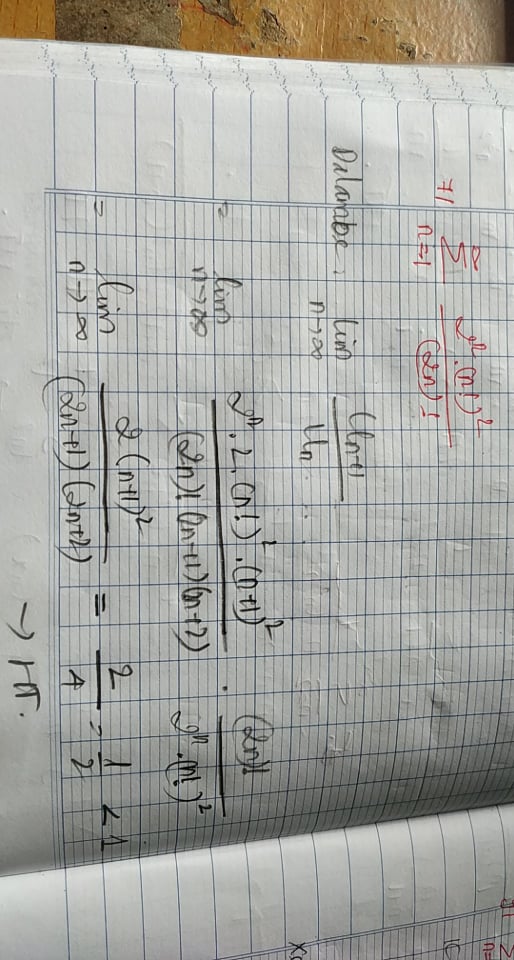 7/ ∑_{n=1}^{∞} \frac{2^n . (n!)^2}{(2n)!}
Dalambe : lim_{n→∞} \frac{U_{n+1}}{U_n}
= lim_{n→∞} \frac{2^n . 2 . (n!)^2 . (n+1)^2}{(2n)! (2n+1)(2n+2)} . \frac{(2n)!}{2^n . (n!)^2}
= lim_{n→∞} \frac{2(n+1)^2}{(2n+1)(2n+2)} = \frac{2}{4} = \frac{1}{2} < 1
→ HT.